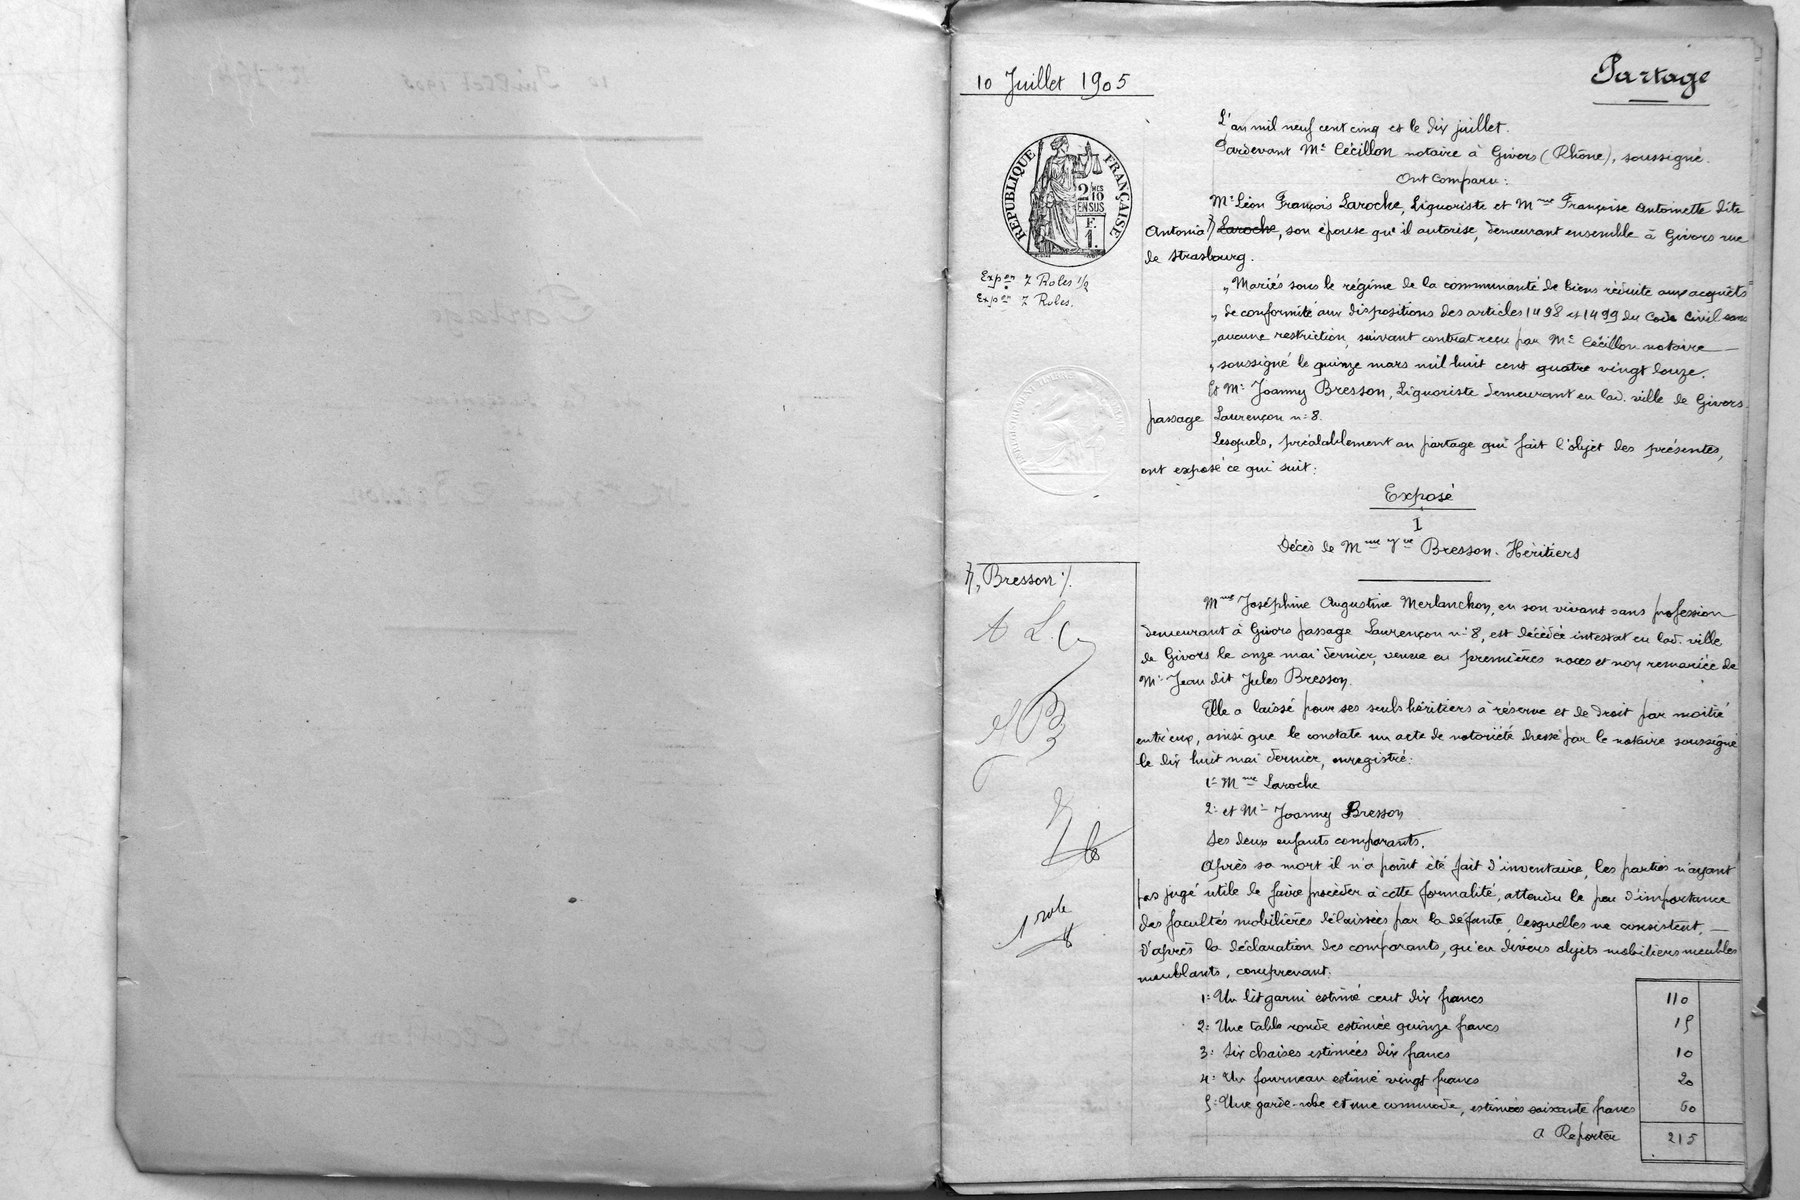 10 Juillet 1905
Partage
RÉPUBLIQUE FRANÇAISE
2/10 MES
EN SUS
F.
1.
Expon 7 Roles 1/2
Expon 7 Roles.
L'an mil neuf cent cinq et le dix juillet.
Pardevant Me Cécillon notaire à Givors (Rhône), soussigné.
Ont Comparu:
Mr Léon François Laroche, Liquoriste et Mme Françoise Antoinette dite
Antonia Laroche, son épouse qu'il autorise, demeurant ensemble à Givors rue
de Strasbourg.
„ Mariés sous le régime de la communauté de biens réduite aux acquêts
„ de conformité aux dispositions des articles 1498 et 1499 du Code Civil sans
„ aucune restriction, suivant contrat reçu par Me Cécillon notaire
„ soussigné le quinze mars mil huit cent quatre vingt douze.
Et Mr Joanny Bresson, Liquoriste demeurant en lad. ville de Givors
passage Laurençon n° 8.
Lesquels, préalablement au partage qui fait l'objet des présentes,
ont exposé ce qui suit:
Exposé
I
Décès de Mme Vve Bresson. Héritiers
Bresson /.
Mme Joséphine Augustine Merlanchon, en son vivant sans profession
demeurant à Givors passage Laurençon n° 8, est décédée intestat en lad. ville
de Givors le onze mai dernier, veuve en premières noces et non remariée de
Mr Jean dit Jules Bresson.
Elle a laissé pour ses seuls héritiers à réserve et de droit par moitié
entr'eux, ainsi que le constate un acte de notoriété dressé par le notaire soussigné
le dix huit mai dernier, enregistré:
1° Mme Laroche
2° et Mr Joanny Bresson
Ses deux enfants comparants.
Après sa mort il n'a point été fait d'inventaire, les parties n'ayant
pas jugé utile de faire procéder à cette formalité, attendu le peu d'importance
des facultés mobilières délaissées par la défunte, lesquelles ne consistent,
d'après la déclaration des comparants, qu'en divers objets mobiliers meubles
meublants, comprenant:
1 role
1° Un lit garni estimé cent dix francs 110
2° Une table ronde estimée quinze francs 15
3° Six chaises estimées dix francs 10
4° Un fourneau estimé vingt francs 20
5° Une garde-robe et une commode, estimées soixante francs 60
A Reporter 215